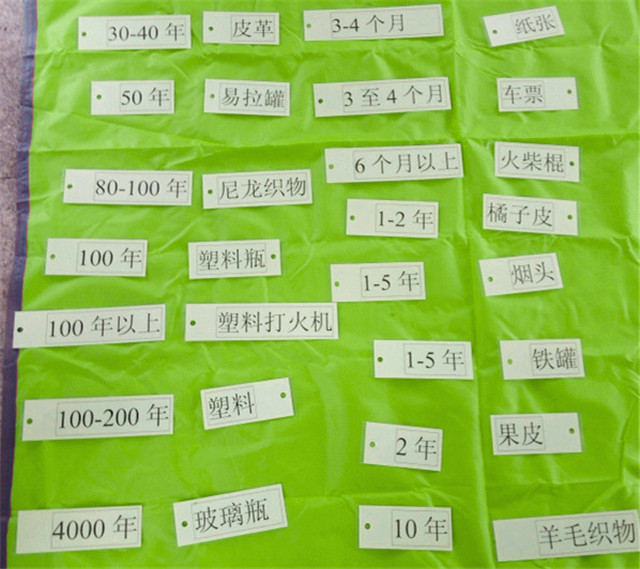 30-40 年 皮革 3-4 个月 纸张
50 年 易拉罐 3 至 4 个月 车票
80-100 年 尼龙织物 6 个月以上 火柴棍
1-2 年 橘子皮
100 年 塑料瓶 1-5 年 烟头
100 年以上 塑料打火机
1-5 年 铁罐
100-200 年 塑料
2 年 果皮
4000 年 玻璃瓶 10 年 羊毛织物